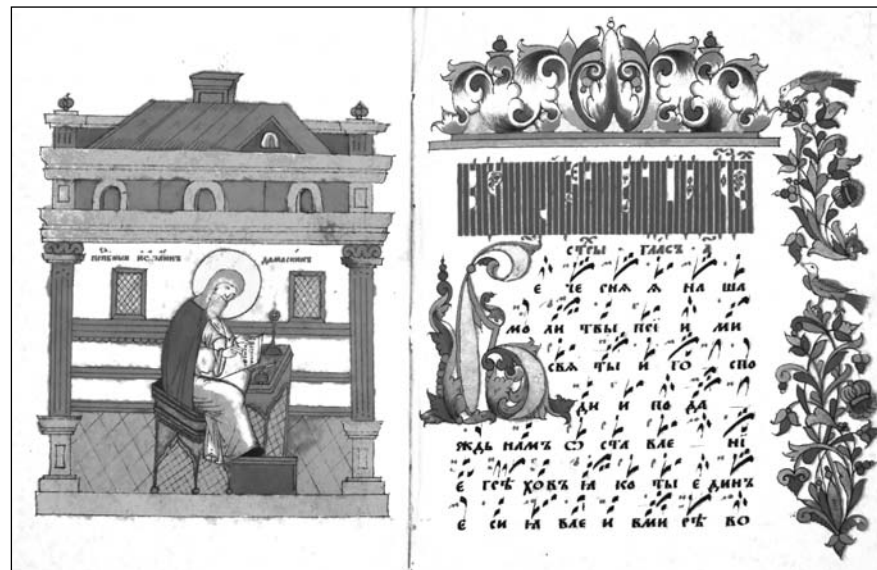 дамаскинъ
стры · гласъ · а
В е че рнѧ ѧ на ша
мо ли твы прі и ми
свѧ ты и го спо
ди и по да
ждь намъ ѡ ста вле нї
е грѣ ховъ ꙗ ко ты е динъ
е си ꙗ вле и вми рѣ во